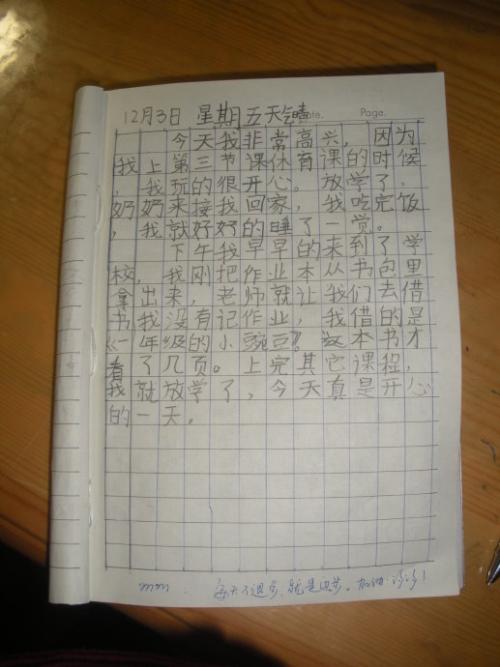 12月3日 星期五 天气晴 Date. Page.
今天我非常高兴，因为
我上第三节课体育课的时候
，我玩的很开心。放学了，
奶奶来接我回家，我吃完饭
，我就好好的睡了一觉。
下午我早早的来到了学
校，我刚把作业本从书包里
拿出来，老师就让我们去借
书我没有记作业，我借的是
《一年级的小豌豆》。这本书才
看了几页。上完其它课程，
我就放学了，今天真是开心
的一天。
每天不退步，就是进步。加油